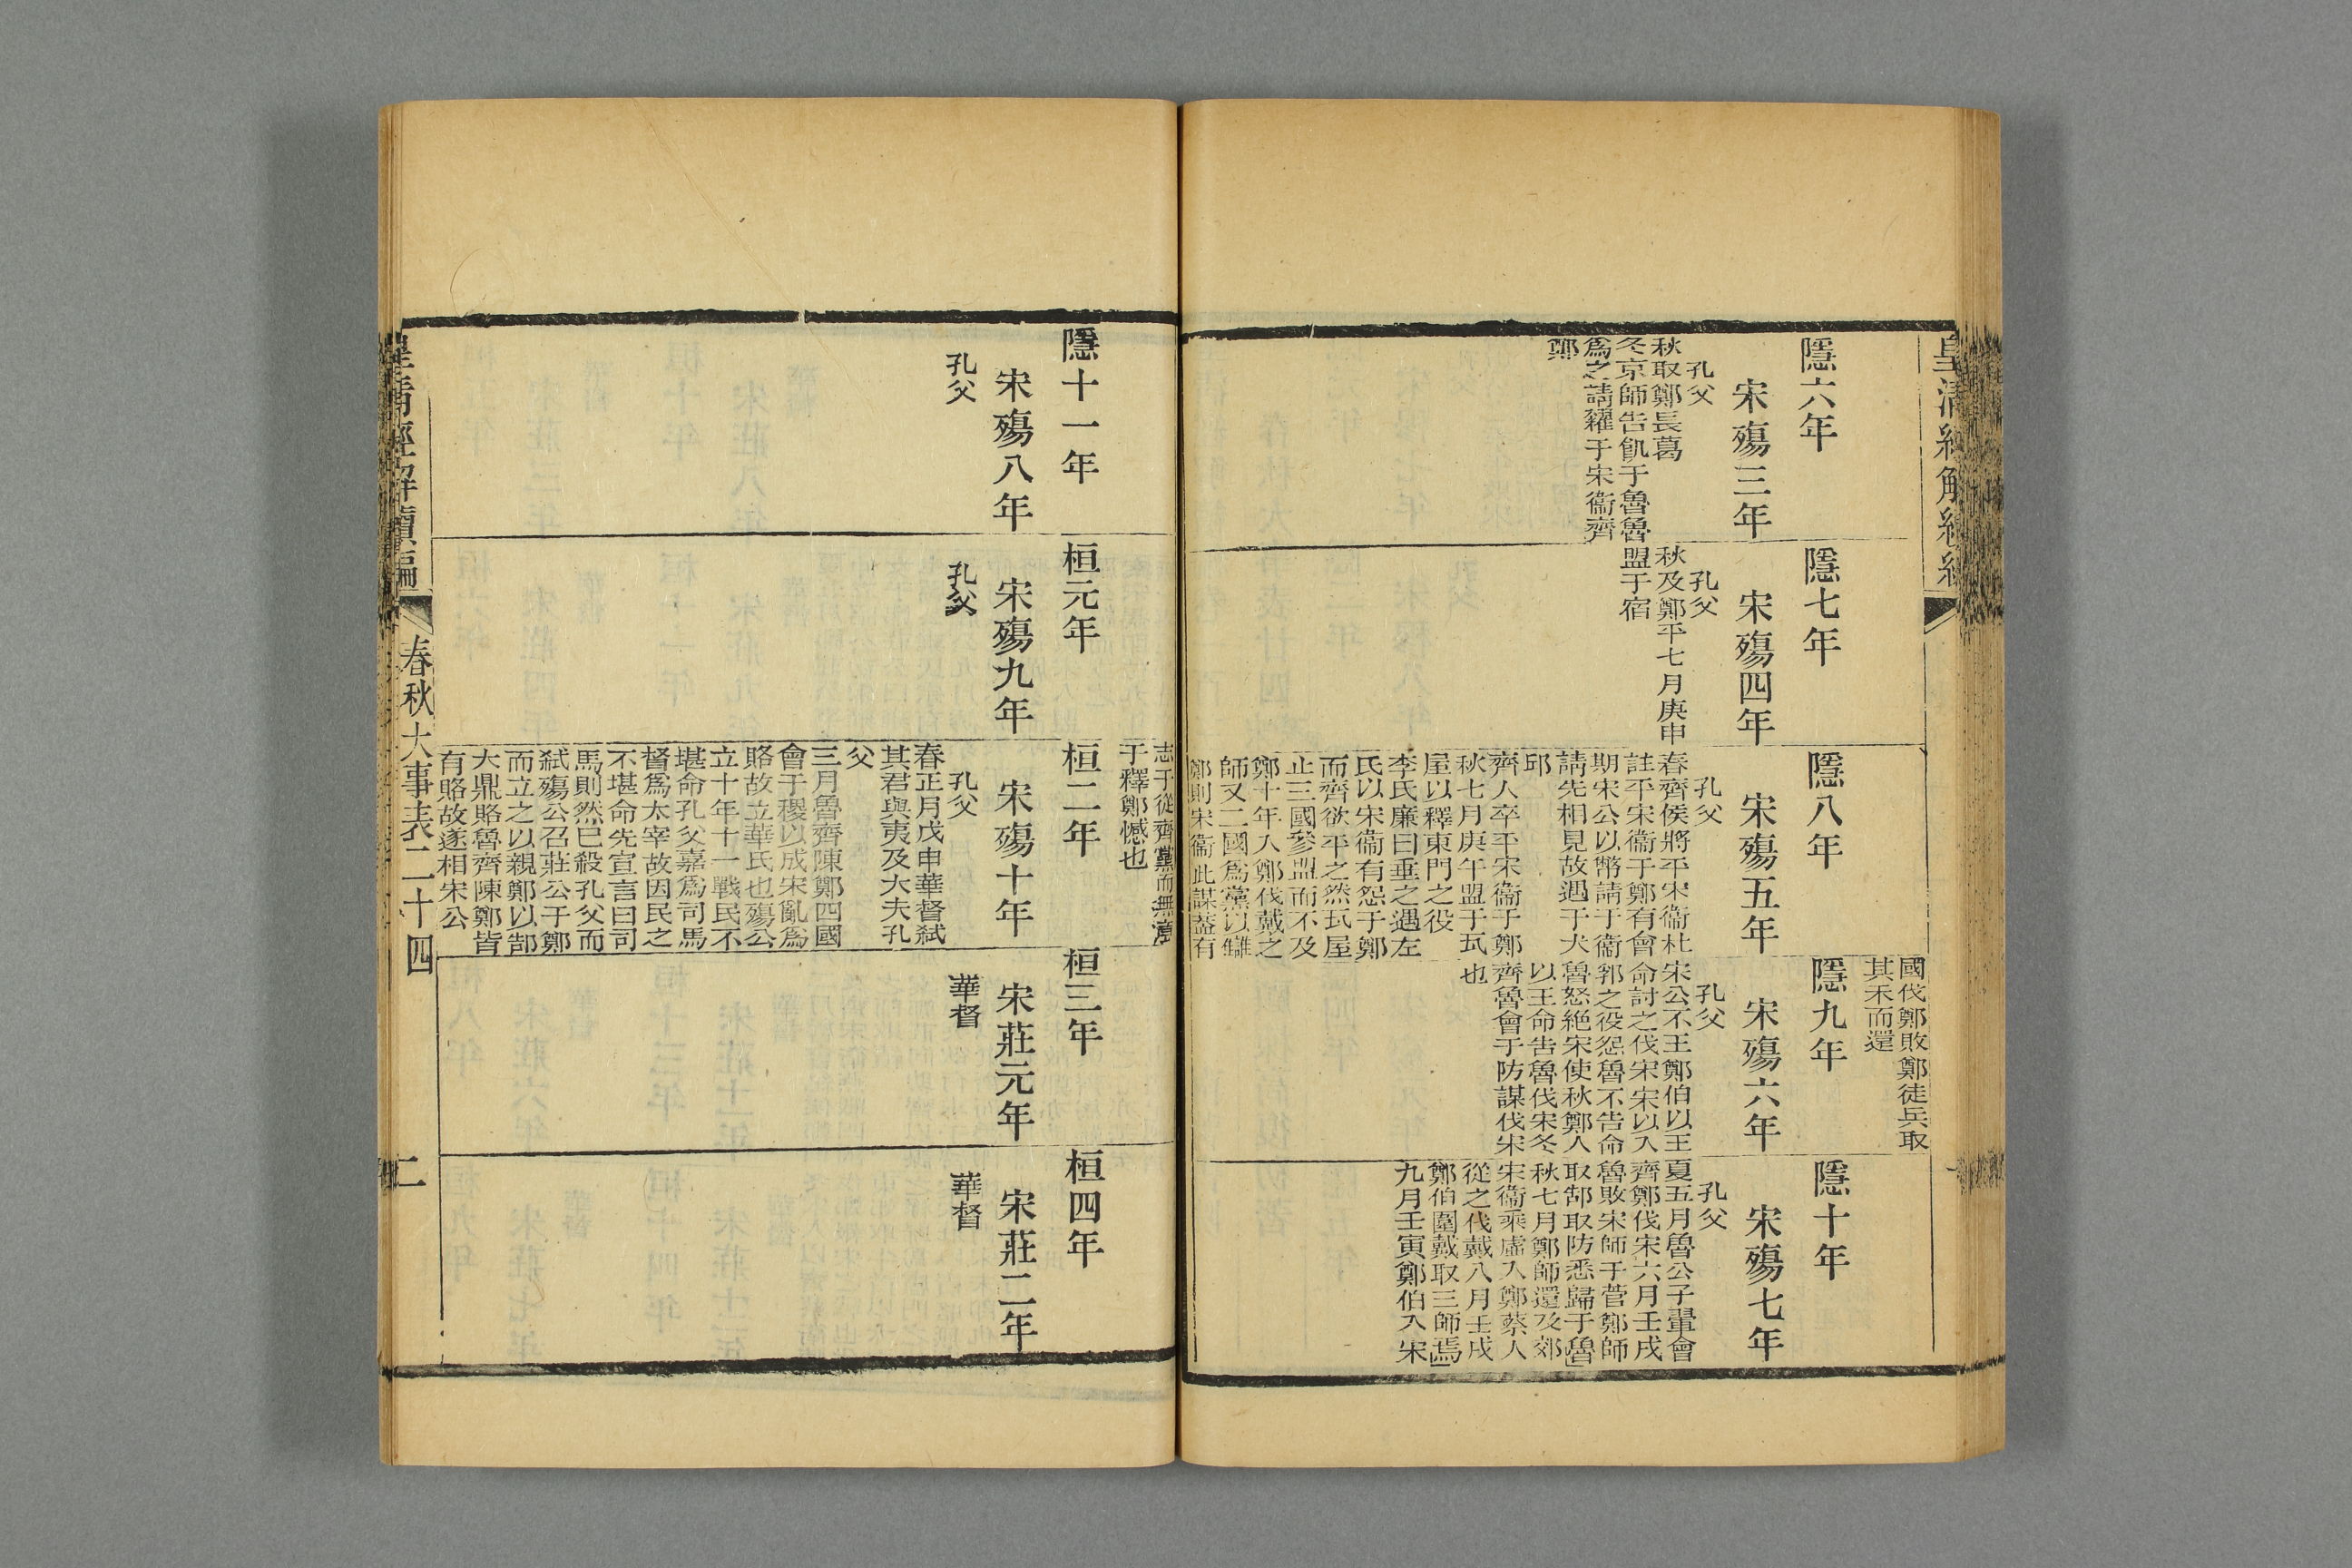 皇清經解續編
隱六年
宋殤三年
孔父
秋取鄭長葛
冬京師告飢于魯魯
爲之請糴于宋衞齊
鄭
隱七年
宋殤四年
孔父
秋及鄭平七月庚申
盟于宿
隱八年
宋殤五年
孔父
春齊侯將平宋衞杜
註平宋衞于鄭有會
期宋公以幣請于衞
請先相見故遇于犬
邱
齊人卒平宋衞于鄭
秋七月庚午盟于瓦
屋以釋東門之役
李氏廉曰垂之遇左
氏以宋衞有怨于鄭
而齊欲平之然瓦屋
止三國參盟而不及
鄭十年入鄭伐戴之
師又二國爲黨以讎
鄭則宋衞此謀蓋有
國伐鄭敗鄭徒兵取
其禾而還
隱九年
宋殤六年
孔父
宋公不王鄭伯以王
命討之伐宋宋以入
郛之役怨魯不告命
魯怒絶宋使秋鄭人
以王命告魯伐宋冬
齊魯會于防謀伐宋
也
隱十年
宋殤七年
孔父
夏五月魯公子翬會
齊鄭伐宋六月壬戌
魯敗宋師于菅鄭師
取郜取防悉歸于魯
秋七月鄭師還及郊
宋衞乘虛入鄭蔡人
從之伐戴八月壬戌
鄭伯圍戴取三師焉
九月壬寅鄭伯入宋
隱十一年
宋殤八年
孔父
桓元年
宋殤九年
孔父
志于從齊黨而無意
于釋鄭憾也
桓二年
宋殤十年
孔父
春正月戊申華督弒
其君與夷及大夫孔
父
三月魯齊陳鄭四國
會于稷以成宋亂爲
賂故立華氏也殤公
立十年十一戰民不
堪命孔父嘉爲司馬
督爲太宰故因民之
不堪命先宣言曰司
馬則然已殺孔父而
弒殤公召莊公于鄭
而立之以親鄭以郜
大鼎賂魯齊陳鄭皆
有賂故遂相宋公
桓三年
宋莊元年
華督
桓四年
宋莊二年
華督
皇清經解續編
春秋大事表二十四
二